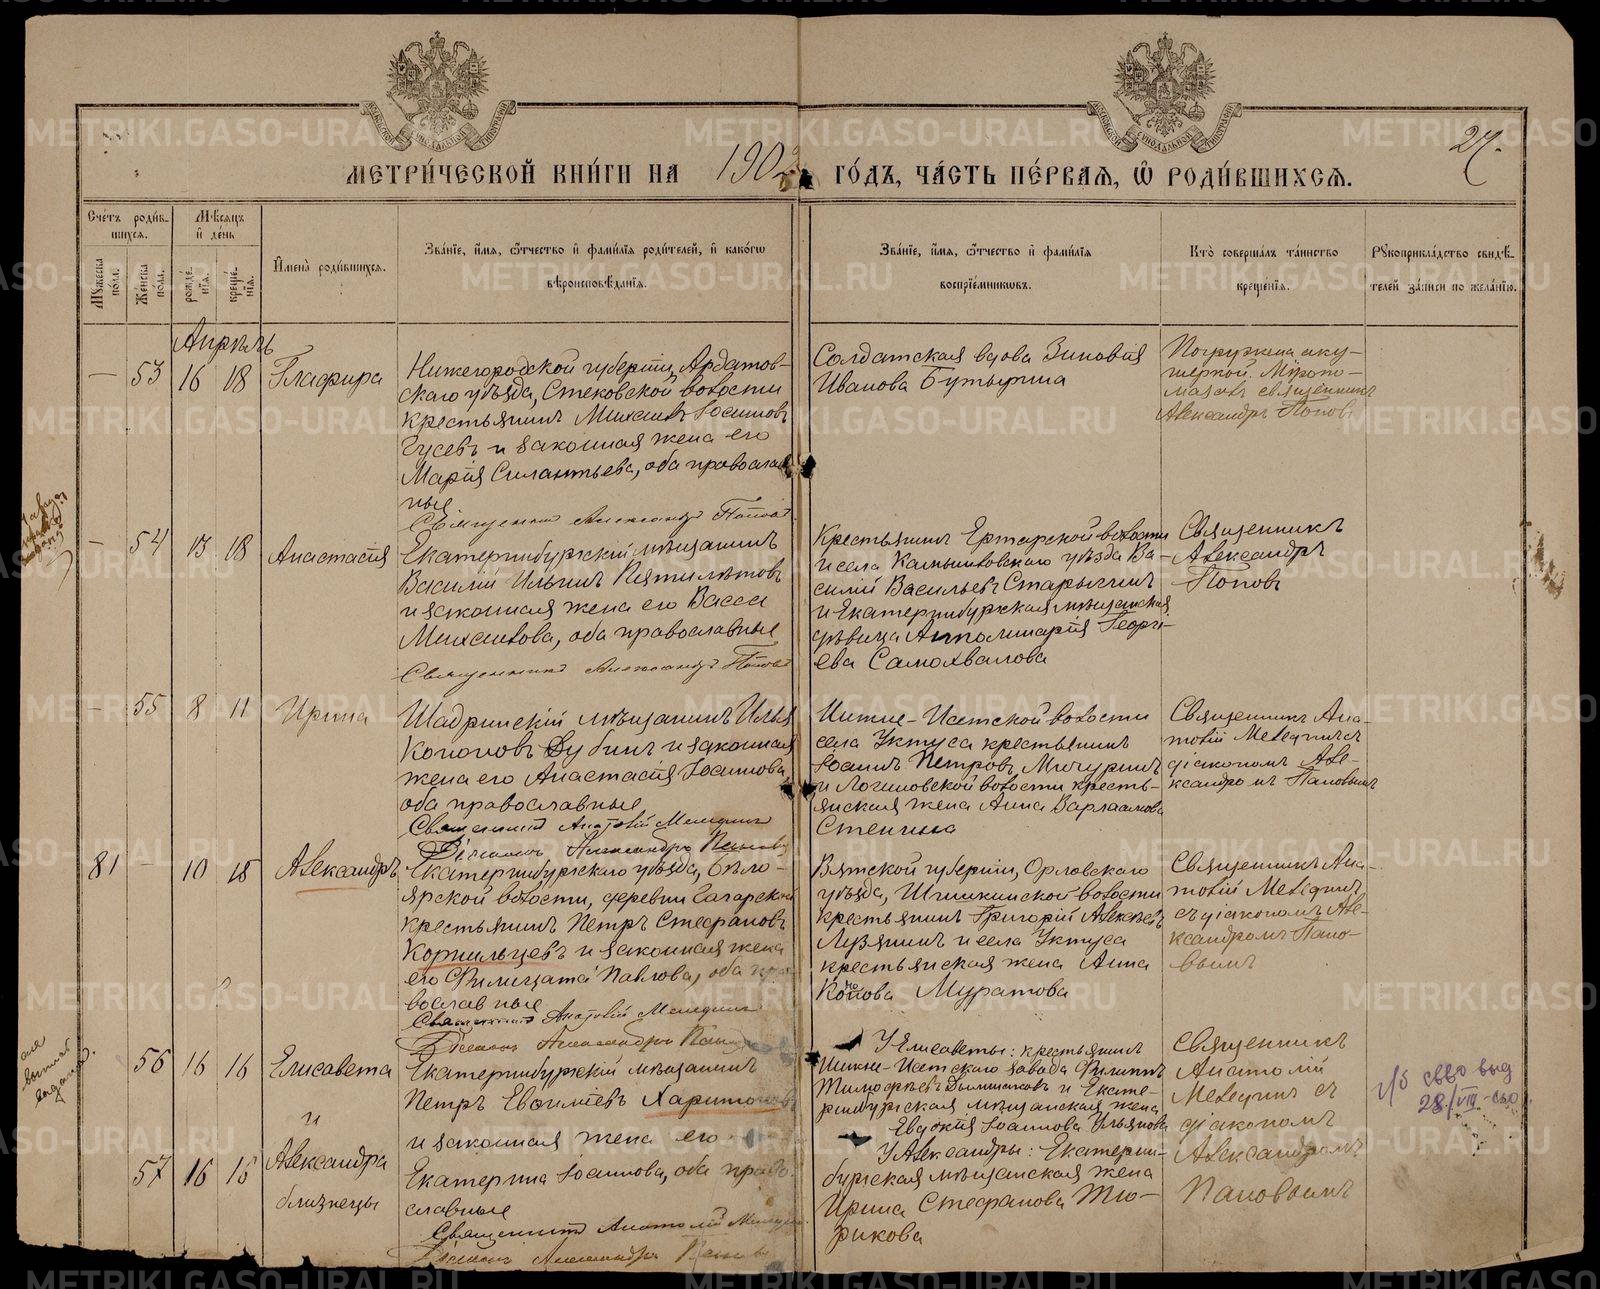 27.
МЕТРИ́ЧЕСКОЙ КНИ́ГИ НА 190 ГО́ДЪ, ЧА́СТЬ ПЕ́РВАЯ, Ѡ РОДИ́ВШИХСЯ.
Сче́тъ роди́в-
шихся.
Му́жеска по́ла.
Же́нска по́ла.
Мѣ́сяцъ
и де́нь
рожде́-
нія.
креще́-
нія.
Имена̀ роди́вшихся.
Зва́ніе, и́мя, о́тчество и фами́лія роди́телей, и како́гѡ
вѣроисповѣ́данія.
Зва́ніе, и́мя, о́тчество и фами́лія
воспріе́мниковъ.
Кто̀ соверша́лъ та́инство
креще́нія.
Рукоприкла́дство свидѣ́-
телей за́писи по жела́нію.
Апрѣль
— 53 16 18 Глафира
Нижегородской губерніи, Ардатов-
скаго уѣзда, Стексовской волости
крестьянинъ Михаилъ Іоаиновъ
Гусевъ и законная жена его
Марія Силантьева, оба православ
ные
Священникъ Александръ Поповъ
Солдатская вдова Зиновія
Иванова Бутырина
Погружена аку-
шеркой. Мѵропо-
мазалъ священникъ
Александръ Поповъ
— 54 13 18 Анастасія
Екатеринбургскій мѣщанинъ
Василій Ильинъ Пятилѣтовъ
и законная жена его Васса
Михаилова, оба православные
Священникъ Александръ Поповъ
Крестьянинъ Ертарской волости
и села Камышловскаго уѣзда Ва-
силій Васильевъ Старыгинъ
и Екатеринбургская мѣщанская
дѣвица Апполинарія Георгі-
ева Самохвалова
Священникъ
Александръ
Поповъ
— 55 8 11 Ирина
Шадринскій мѣщанинъ Илья
Кононовъ Дубинъ и законная
жена его Анастасія Іоаннова,
оба православные
Священникъ Анатолій Мелединъ
Діаконъ Александръ Пановъ
Нижне-Исетской волости
села Уктуса крестьянинъ
Іоаннъ Петровъ Мичуринъ
и Логиновской волости кресть-
янская жена Анна Варлаамова
Стенина
Священникъ Ана-
толій Меледин съ
діакономъ Але-
ксандромъ Пановымъ
81 — 10 18 Александръ
Екатеринбургскаго уѣзда, Бѣло-
ярской волости, деревни Гагарской
крестьянинъ Петръ Стефановъ
Кормильцевъ и законная жена
его Филицата Павлова, оба пра
вославные
Священникъ Анатолій Меледин
Діаконъ Александръ Пановъ
Вятской губерніи, Орловскаго
уѣзда, волости
крестьянинъ Григорій Алексѣевъ
Лузянинъ и села Уктуса
крестьянская жена Анна
Конова Муратова
Священникъ Ана-
толій Меледин
съ діакономъ Але-
ксандромъ Пано-
вымъ
56 16 16 Елисавета
и
57 16 16 Александра
близнецы
Екатеринбургскій мѣщанинъ
Петръ Харитоновъ
и законная жена его
Екатерина Іоаннова, оба право
славные
Священникъ Анатолій Меледин
Діаконъ Александръ Пановъ
У Елисаветы: крестьянинъ
Нижне-Исетскаго завода Филиппъ
Тимофѣевъ и Екате-
ринбургская мѣщанская жена
Евдокія Іоаннова Ульянова
У Александры: Екатерин-
бургская мѣщанская жена
Ирина Стефанова Тю-
рикова
Священникъ
Анатолій
Меледин съ
діакономъ
Александромъ
Пановымъ
28/VIII
METRIKI.GASO-URAL.RU